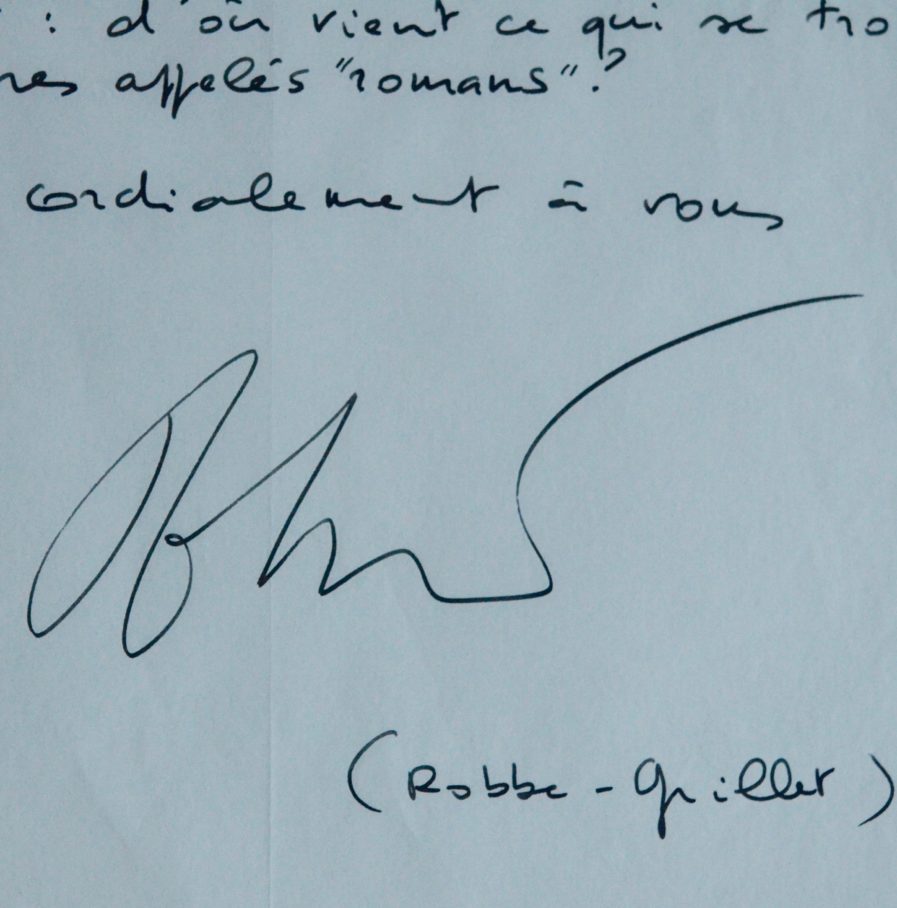 : d'où vient ce qui se tro
res appelés "romans"?
cordialement à vous
(Robbe-Grillet)